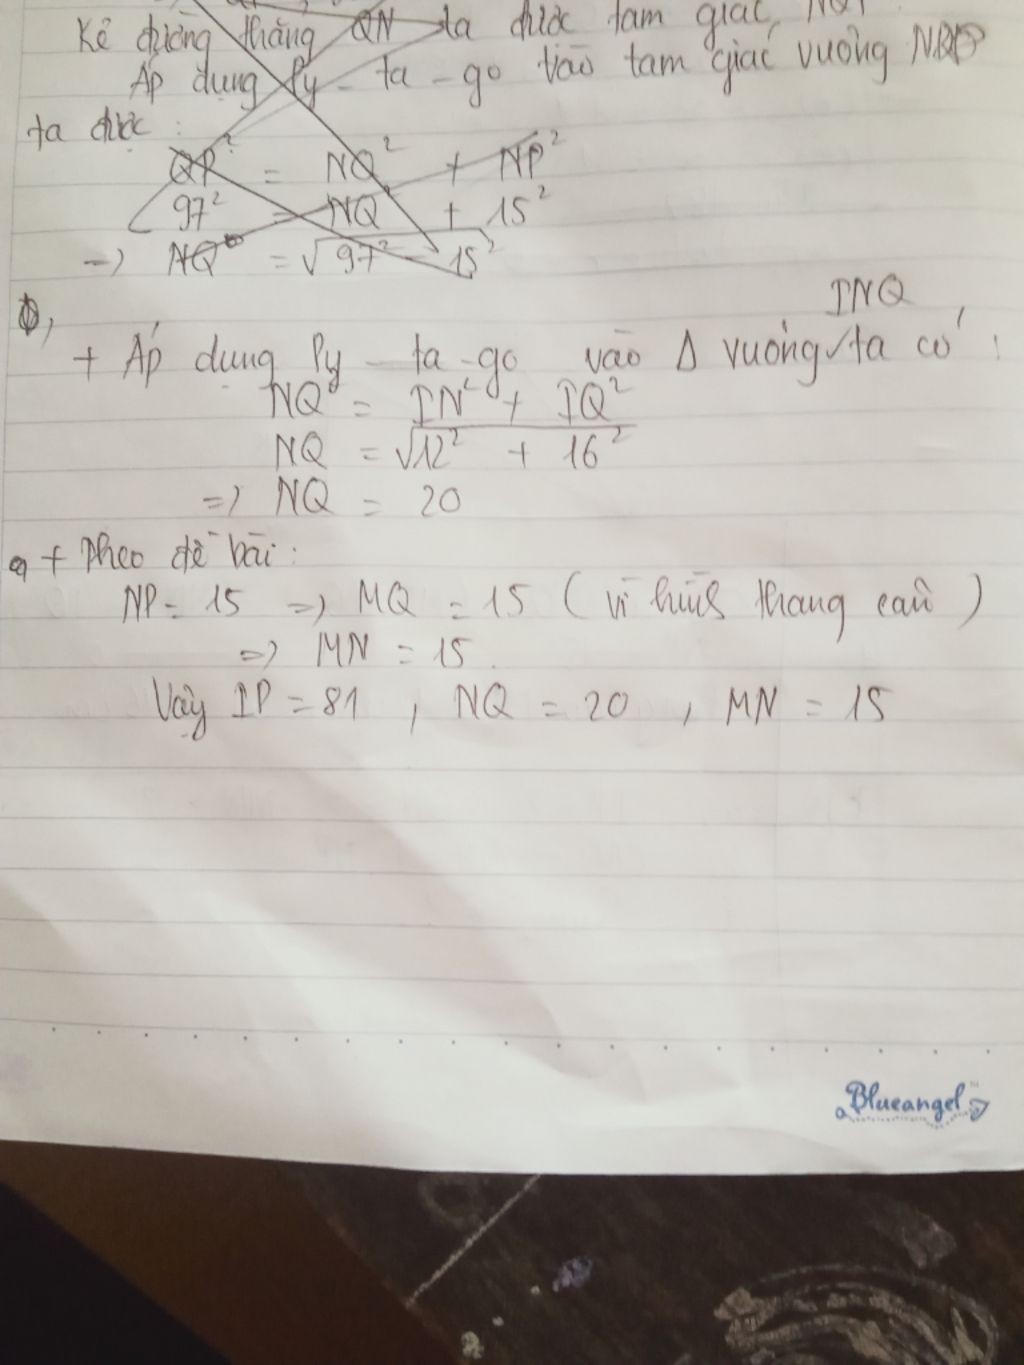 Kẻ đường thẳng QN ta được tam giác NQP
Áp dụng Py - ta - go vào tam giác vuông
ta được :
QP² = NQ² + NP²
97² = NQ² + 15²
=> NQ = √97² - 15²
INQ
+ Áp dụng Py - ta - go vào Δ vuông ta có :
NQ² = IN² + IQ²
NQ = √12² + 16²
=> NQ = 20
+ Theo đề bài :
NP = 15 => MQ = 15 ( vì hình thang cân )
=> MN = 15
Vậy IP = 81 , NQ = 20 , MN = 15
Blueangel